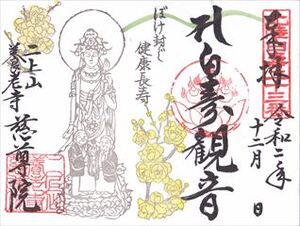 奉拝
令和二年
十二月 日
白寿観音
ぼけ封じ
健康長寿
慈尊院
二上山
養老寺